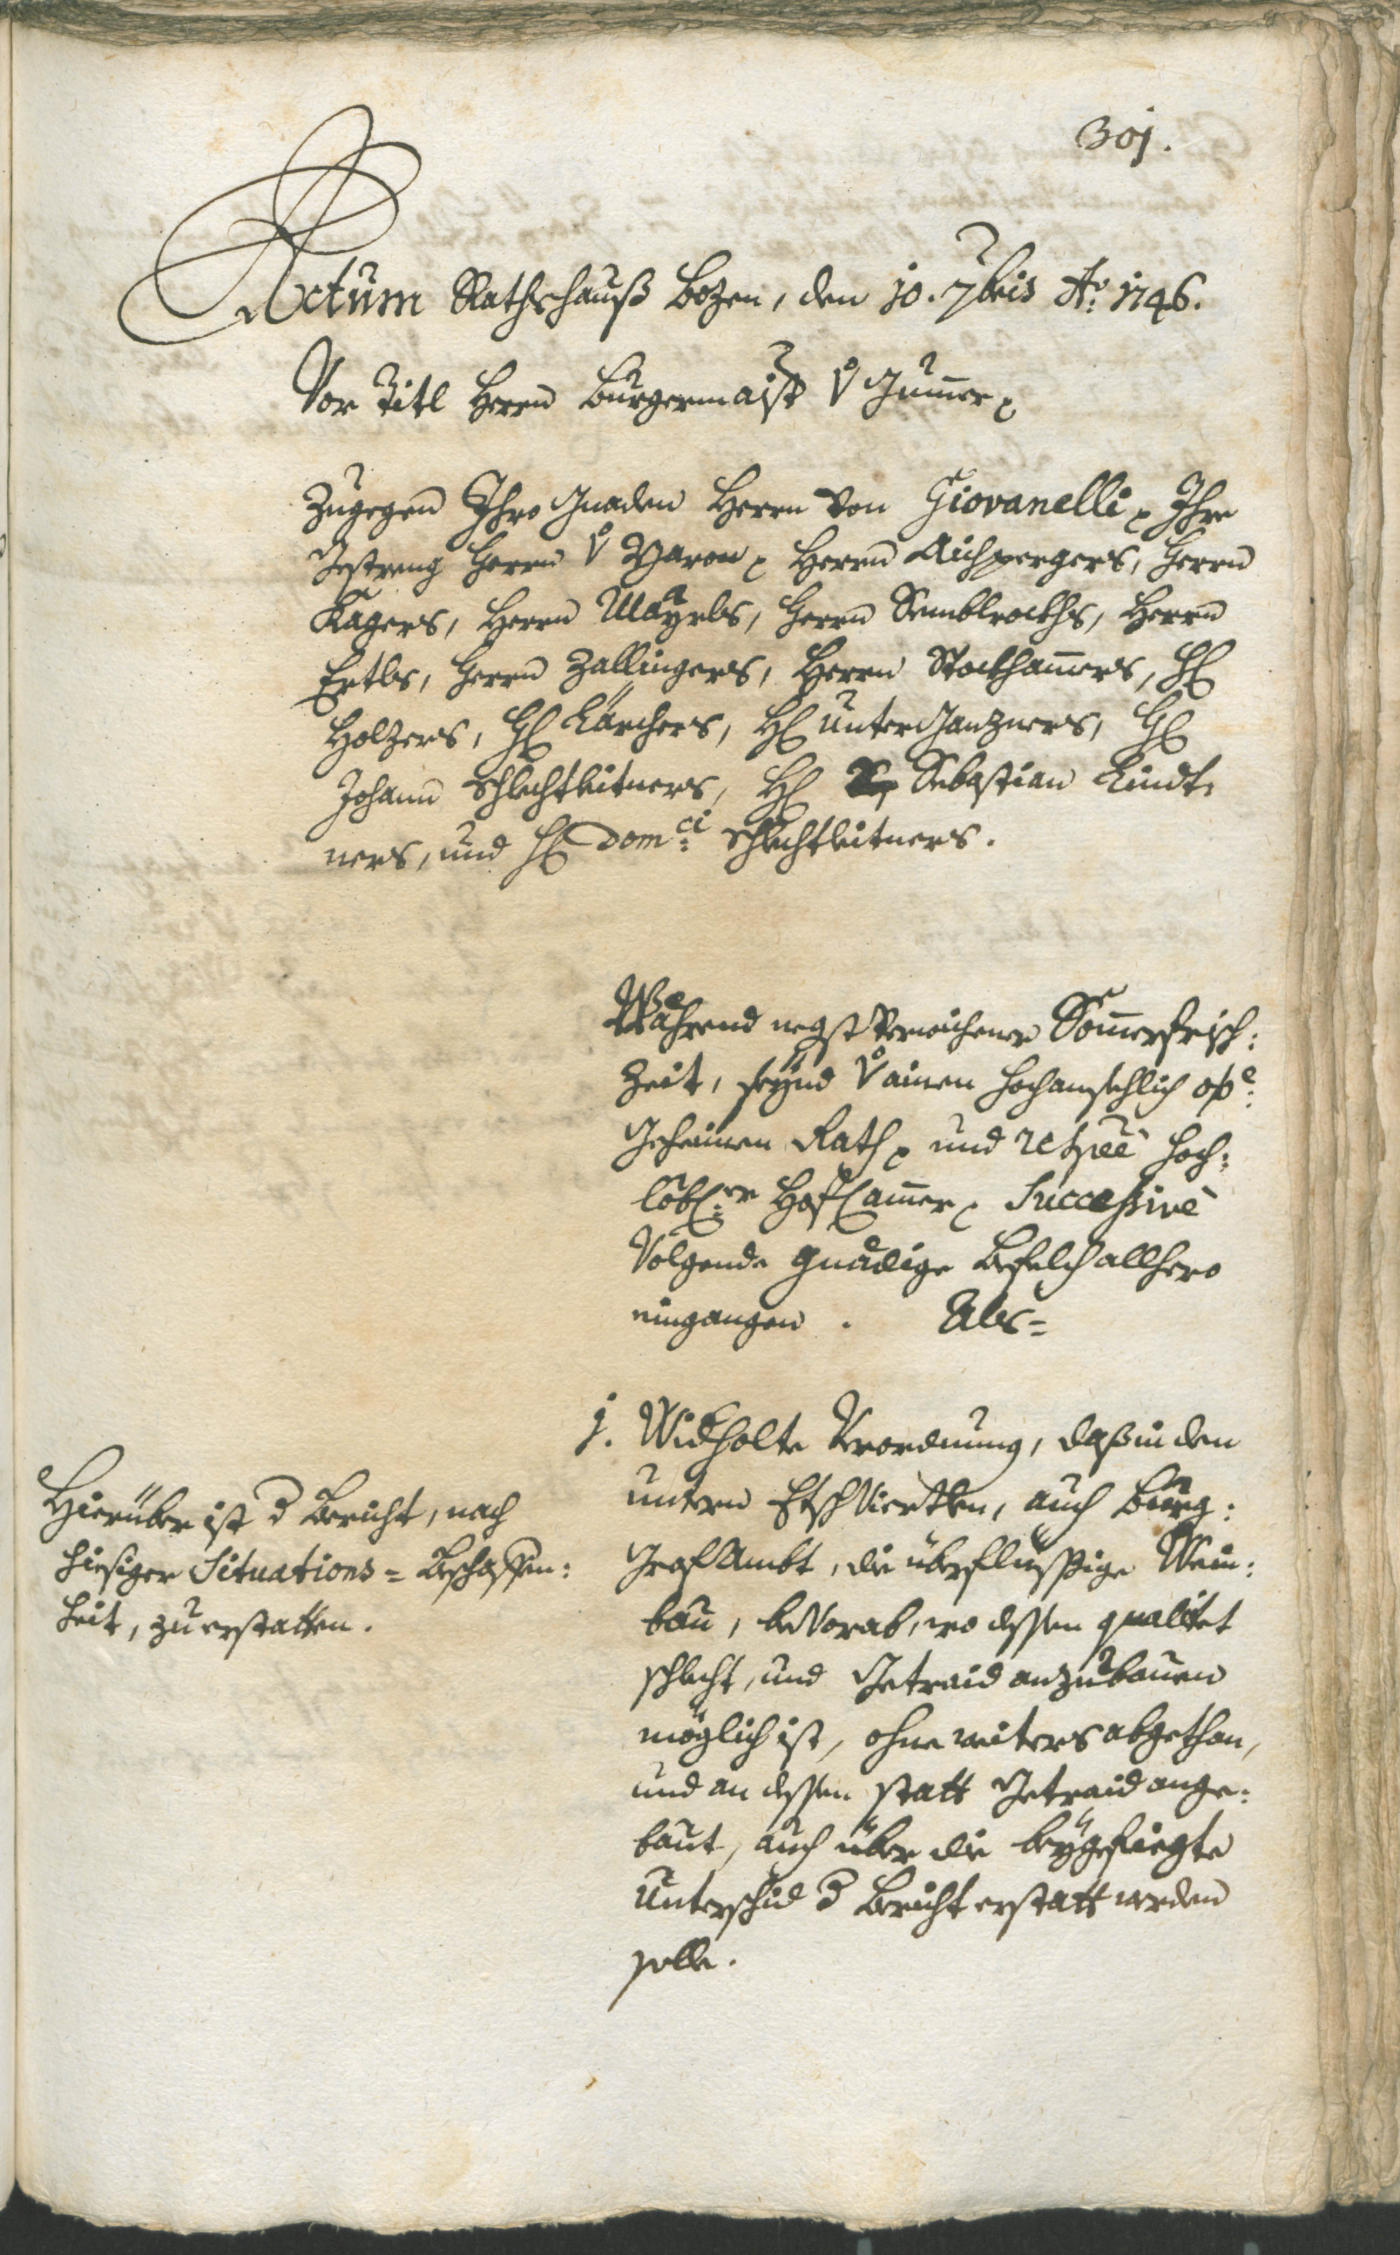 301.
Actum Rathshauß Bozen, den 10. 7bris Ao: 1746.
Vor Titl Herrn Burgermaister v Gumer
Zugegen Ihro Gnaden Herrn von Giovanelli Ihro
Gestreng Herrn v Maron Herrn Aichpergers, Herrn
Kagers, Herrn Mayrls, Herrn Semblrockhs, Herrn
Ertls, Herrn Zallingers, Herrn Stockhamers, H
Holzers, H Kärchers, H untergänzners, H
Johann Schlechtleitners, H Sebastian Lindt-
ners, und H Domci: Schlechtleitners.
Während negst verwichener Somerfrisch:
Zeit, seynd v ainen hochansehlich oße:
Geheimen Rath und respvè hoch:
löbl:er HofCamer Successivè
Volgende gnädige Befelch allhero
eingangen. Als=
1. Widholte Verordnung, daß in den
untern EtschViertlen, auch Burg:
GrafAmbt, die überflüssige Wein:
bau, bevorab, wo dessen qualitet
schlecht, und Getraid anzubauen
möglich ist, ohne weiters abgethan,
und an dessen statt Getraid ange:
baut, auch über die beygefiegte
Unterschid d Bericht erstatt werden
solle.
Hierüber ist d Bericht, nach
hiesiger Situations= Beschaffen:
heit, zu erstatten.